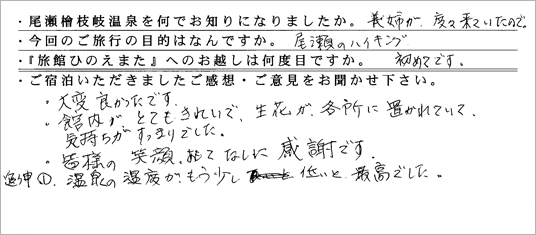 ・尾瀬檜枝岐温泉を何でお知りになりましたか。 長姉が、度々来ていたので。
・今回のご旅行の目的はなんですか。 尾瀬のハイキング
・『旅館ひのえまた』へのお越しは何度目ですか。 初めてです。
・ご宿泊いただきましたご感想・ご意見をお聞かせ下さい。
・大変良かったです。
・館内が、とてもきれいで、生花が、各所に置かれていて、
気持ちがすっきりでした。
・皆様の笑顔、おもてなしに感謝です。
①、温泉の温度が、もう少し 低いと、最高でした。